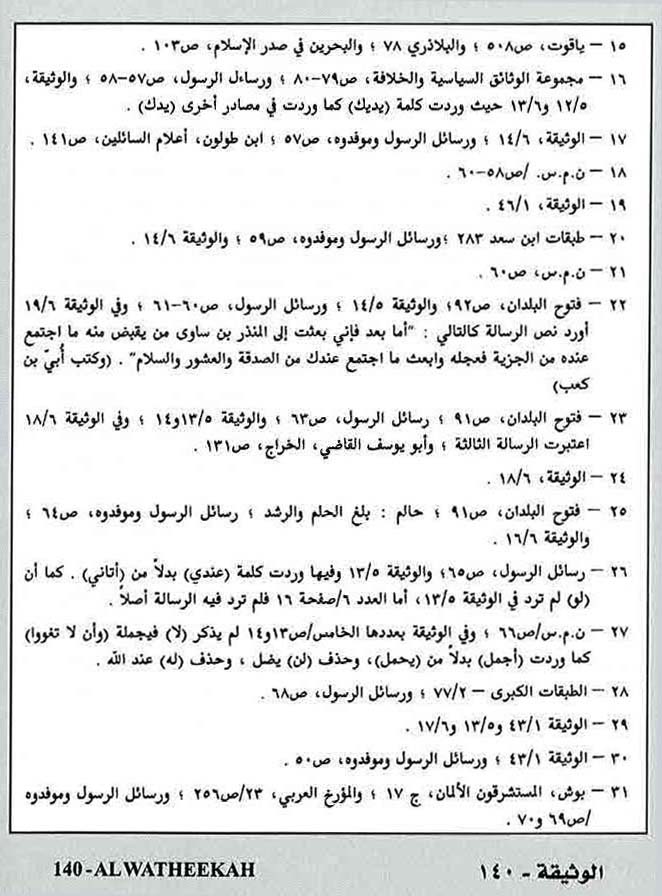 ١٥ – ياقوت، ص٥٠٨ ؛ والبلاذري ٧٨ ؛ والبحرين في صدر الإسلام، ص١٠٣ .
١٦ – مجموعة الوثائق السياسية والخلافة، ص٧٩–٨٠ ؛ ورساءل الرسول، ص٥٧–٥٨ ؛ والوثيقة،
١٢/٥ و١٣/٦ حيث وردت كلمة (يديك) كما وردت في مصادر أخرى (يدك) .
١٧ – الوثيقة، ١٤/٦ ؛ ورسائل الرسول وموفدوه، ص٥٧ ؛ ابن طولون، أعلام السائلين، ص١٤١ .
١٨ – ن.م.س. /ص٥٨–٦٠ .
١٩ – الوثيقة، ٤٦/١ .
٢٠ – طبقات ابن سعد ٢٨٣ ؛ورسائل الرسول وموفدوه، ص٥٩ ؛ والوثيقة ١٤/٦ .
٢١ – ن.م.س، ص٦٠ .
٢٢ – فتوح البلدان، ص٩٢؛ والوثيقة ١٤/٥ ؛ ورسائل الرسول، ص٦٠–٦١ ؛ وفي الوثيقة ١٩/٦
أورد نص الرسالة كالتالي : "أما بعد فإني بعثت إلى المنذر بن ساوى من يقبض منه ما اجتمع
عنده من الجزية فعجله وابعث ما اجتمع عندك من الصدقة والعشور والسلام" . (وكتب أُبيّ بن
كعب)
٢٣ – فتوح البلدان، ص٩١ ؛ رسائل الرسول، ص٦٣ ؛ والوثيقة ١٣/٥و١٤ ؛ وفي الوثيقة ١٨/٦
اعتبرت الرسالة الثالثة ؛ وأبو يوسف القاضي، الخراج، ص١٣١ .
٢٤ – الوثيقة، ١٨/٦ .
٢٥ – فتوح البلدان، ص٩١ ؛ حالم : بلغ الحلم والرشد ؛ رسائل الرسول وموفدوه، ص٦٤ ؛
والوثيقة ١٦/٦ .
٢٦ – رسائل الرسول، ص٦٥؛ والوثيقة ١٣/٥ وفيها وردت كلمة (عندي) بدلاً من (أتاني) . كما أن
(لو) لم ترد في الوثيقة ١٣/٥، أما العدد ٦/صفحة ١٦ فلم ترد فيه الرسالة أصلاً .
٢٧ – ن.م.س/ص٦٦ ؛ وفي الوثيقة بعددها الخامس/ص١٣و١٤ لم يذكر (لا) فيجملة (وأن لا تغووا)
كما وردت (أجمل) بدلاً من (يحمل)، وحذف (لن) يضل ، وحذف (له) عند الله .
٢٨ – الطبقات الكبرى – ٧٧/٢ ؛ ورسائل الرسول، ص٦٨ .
٢٩ – الوثيقة ٤٣/١ و١٣/٥ و١٧/٦ .
٣٠ – الوثيقة ٤٣/١ ؛ ورسائل الرسول وموفدوه، ص٥٠ .
٣١ – بوش، المستشرقون الألمان، ج ١٧ ؛ والمؤرخ العربي، ٢٣/ص٢٥٦ ؛ ورسائل الرسول وموفدوه
/ص٦٩ و٧٠ .
الوثيقة - ١٤٠
140 - AL WATHEEKAH